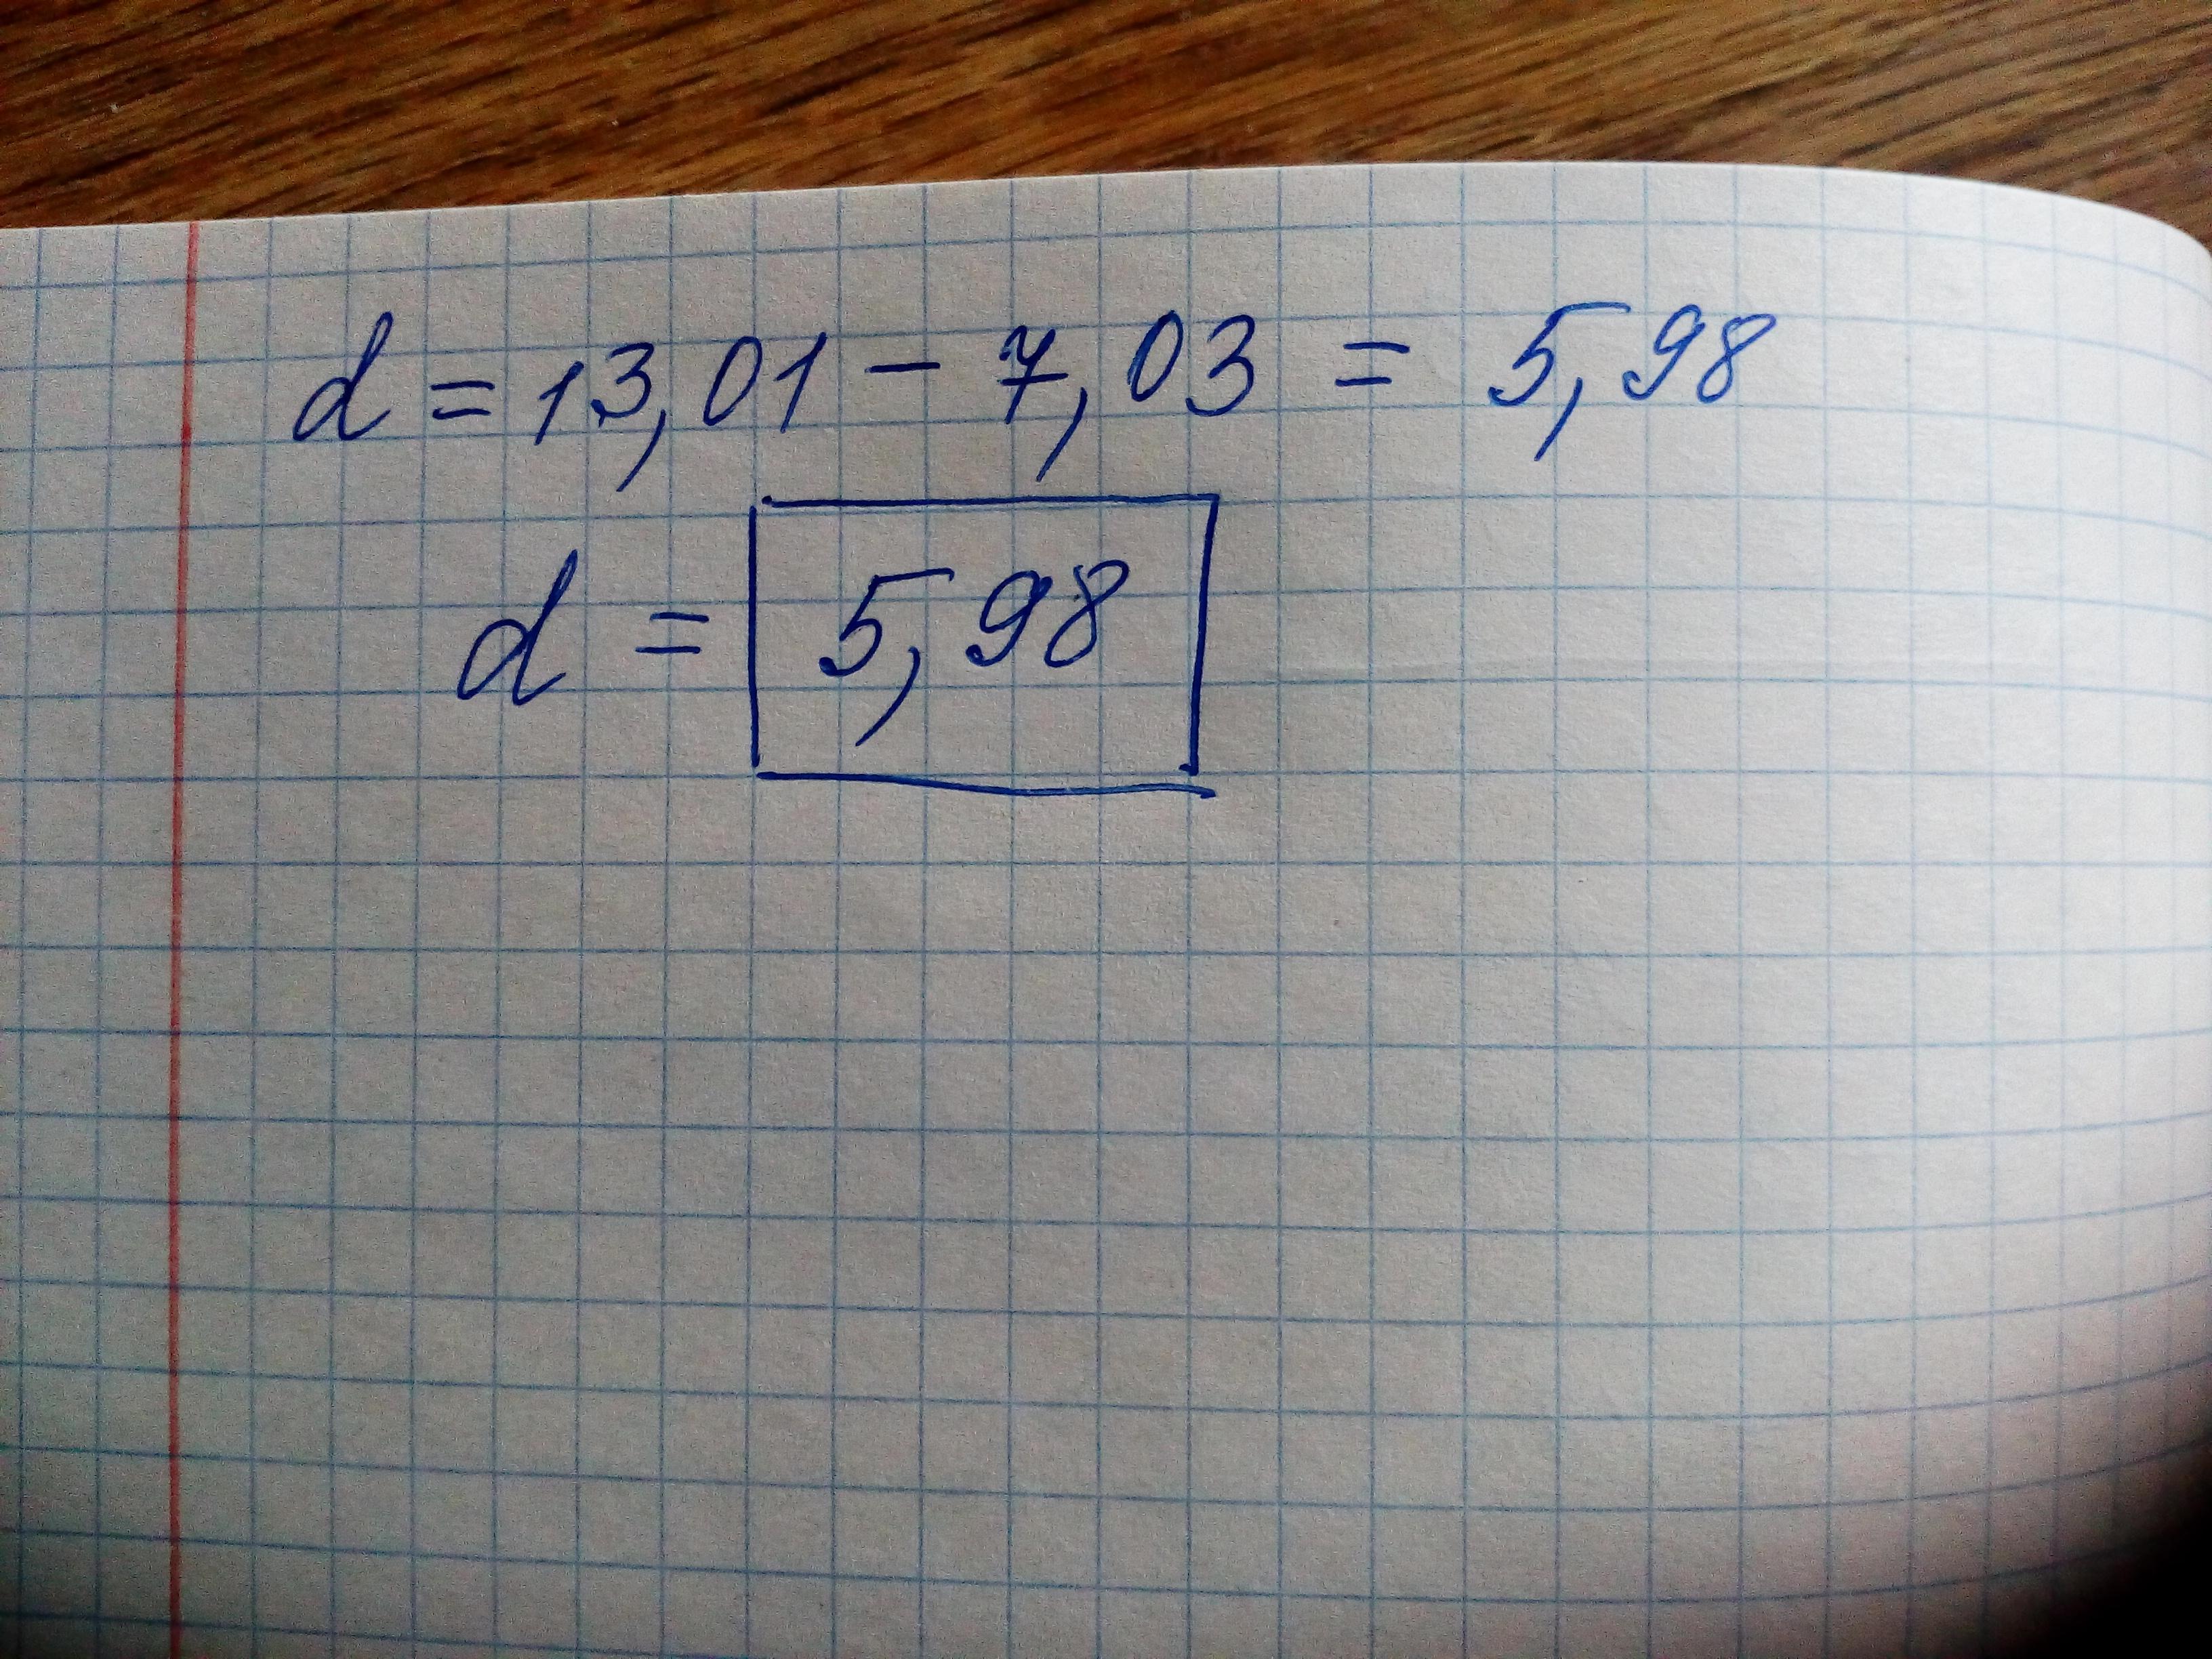 d = 13,01 - 7,03 = 5,98
d = 5,98